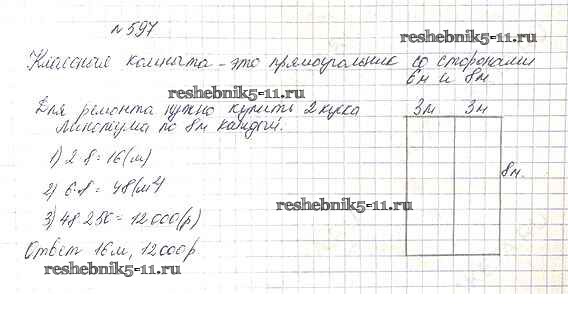 № 597
reshebnik5-11.ru
Классная комната - это прямоугольник со сторонами
6м и 8м
reshebnik5-11.ru
Для ремонта нужно купить 2 куска
линолеума по 8м каждый.
3м 3м
8м.
1) 2·8=16(м)
2) 6·8=48(м²)
reshebnik5-11.ru
3) 48·250=12000(р)
Ответ 16м, 12000р
reshebnik5-11.ru